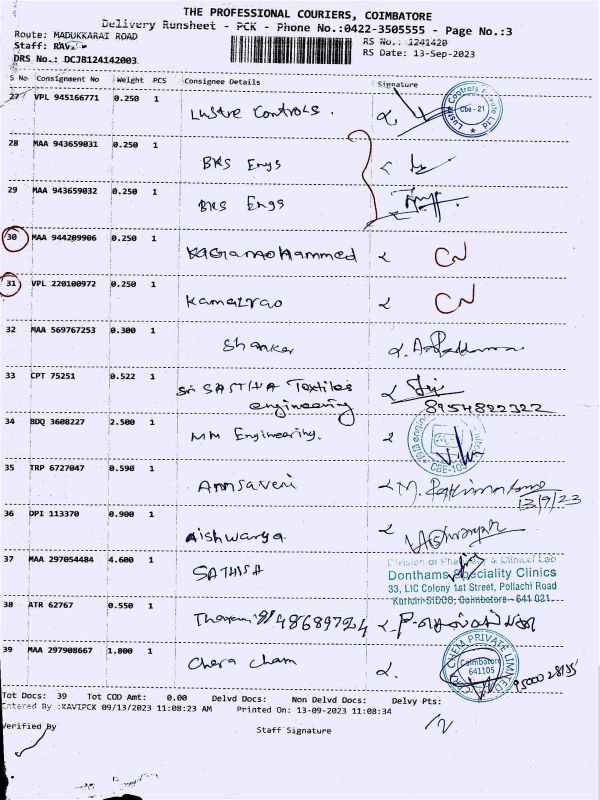 THE PROFESSIONAL COURIERS, COIMBATORE
Delivery Runsheet - PCK - Phone No.:0422-3505555 - Page No.:3
Route: MADUKKARAI ROAD
RS No.: 1241420
Staff: RAVI
RS Date: 13-Sep-2023
DRS No.: DCJB124142003
S No Consignment No Weight PCS Consignee Details Signature
27 VPL 945166771 0.250 1 Lustre Controls.
Lustre Controls Private Ltd Cbe - 21
28 MAA 943659031 0.250 1 BKS Engs
29 MAA 943659032 0.250 1 BKS Engs
30 MAA 944209906 0.250 1 CN
31 VPL 220100972 0.250 1 CN
32 MAA 569767253 0.300 1 Shanker
33 CPT 75251 0.522 1 Sri SASTHA Textiles
engineering 8954822322
34 BDQ 3608227 2.500 1 MM Engineering.
35 TRP 6727047 0.590 1 Annsaveni
13/9/23
36 DPI 113370 0.900 1 Aishwarya
37 MAA 297054484 4.600 1 SATHISH
Division of & Clinical Lab
Donthams Speciality Clinics
33, LIC Colony 1st Street, Pollachi Road
Kurichi SIDCO, Coimbatore - 641 021
38 ATR 62767 0.550 1
39 MAA 297908667 1.800 1 Chera Cham
CHEM PRIVATE LIMITED Coimbatore 641105
Tot Docs: 39 Tot COD Amt: 0.00 Delvd Docs: Non Delvd Docs: Delvy Pts:
Entered By :KAVIPCK 09/13/2023 11:08:23 AM Printed On: 13-09-2023 11:08:34
Verified By Staff Signature